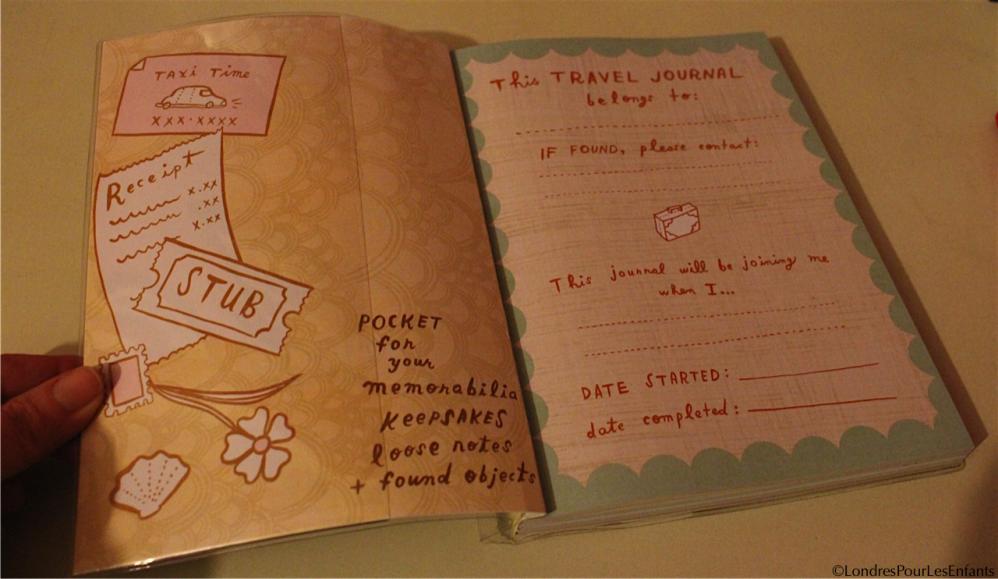 TAXI Time
XXX·XXXX
Receipt
X.XX
.XX
X.XX
STUB
POCKET
for
your
memorabilia
KEEPSAKES
loose notes
+ found objects
This TRAVEL JOURNAL
belongs to:
IF FOUND, please contact:
This journal will be joining me
when I...
DATE STARTED:
date completed:
©LondresPourLesEnfants